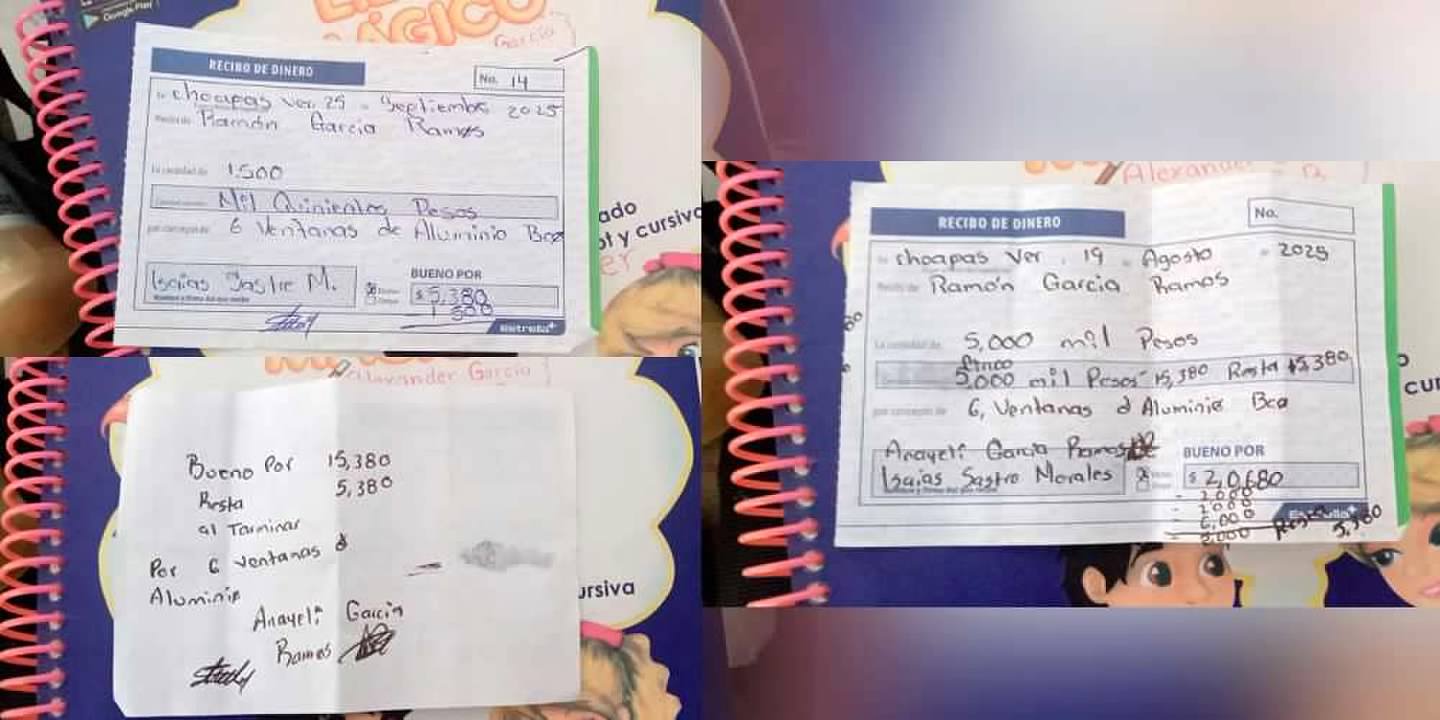 Google Play
García
RECIBO DE DINERO
No. 14
choapas Ver. 25 - Septiembre 2025
Recibí de Ramón Garcia Ramos
La cantidad de 1,500
Mil Quinientos Pesos
por concepto de 6 Ventanas de Aluminio Bca
Isaías Sastre M.
BUENO POR
$ 5,380
1 500
Estrella
ado
ot y cursiva
RECIBO DE DINERO
No.
choapas Ver. 19 - Agosto - 2025
Recibí de Ramón Garcia Ramos
La cantidad de 5,000 mil Pesos
Cinco
5,000 mil Pesos 15,380 Resta 5,380
por concepto de 6, Ventanas d Aluminio Bca
Anayeli Garcia Ramos
Isaías Sastro Morales
BUENO POR
$ 2,0680
- 2,000
- 2,000
- 6,000
- 5,000 Resta 5,380
Estrella
cur
Alexander García
Bueno Por 15,380
Resta 5,380
al Tarminar
Por 6 ventanas d
Aluminio
Anayeli Garcia
Ramos
ursiva